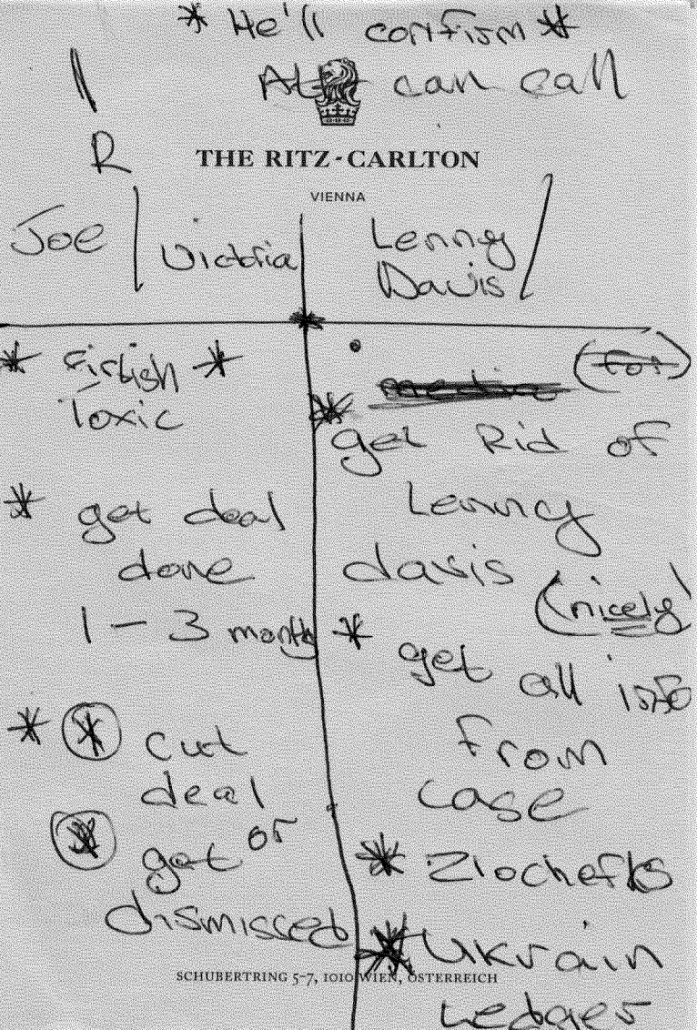 * He'll confirm *
can call
R
THE RITZ-CARLTON
VIENNA
Joe
Victoria
Lenny
Davis
* Firtish *
toxic
* get deal
done
1-3 month
* * cut
deal
or
* get
dismissed
(for)
* get Rid of
Lenny
davis
(nicely)
* get all info
from
case
* Zlochefks
* Ukrain
Ledges
SCHUBERTRING 5-7, 1010 WIEN, ÖSTERREICH